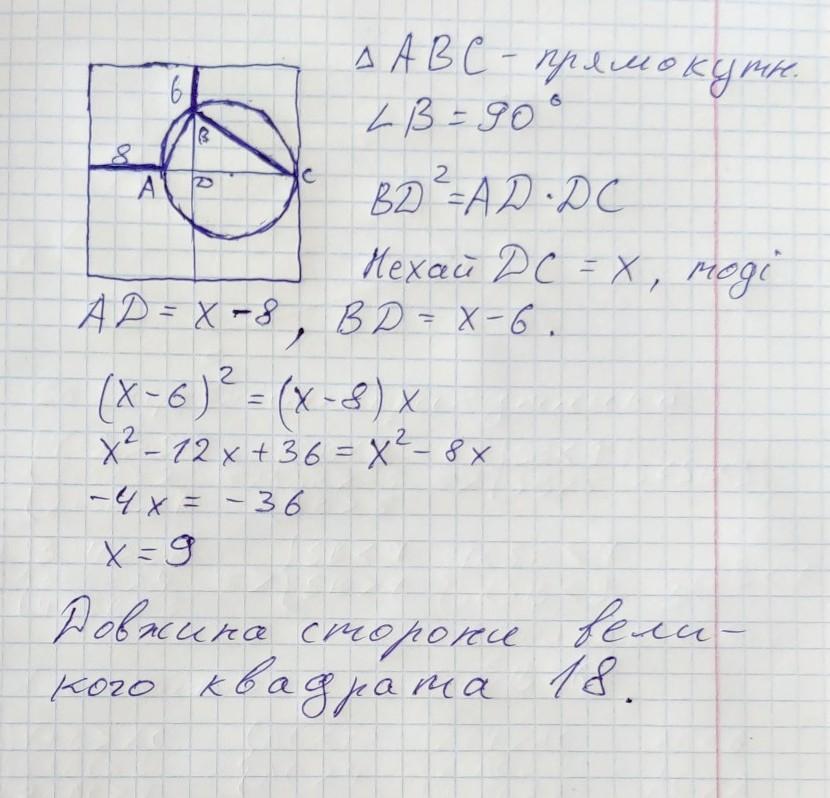 6
B
8
A
D
C
△ABC - прямокутн.
∠B = 90°
BD² = AD · DC
Нехай DC = x, тоді
AD = x - 8, BD = x - 6.
(x - 6)² = (x - 8) x
x² - 12x + 36 = x² - 8x
-4x = -36
x = 9
Довжина сторони вели-
кого квадрата 18.